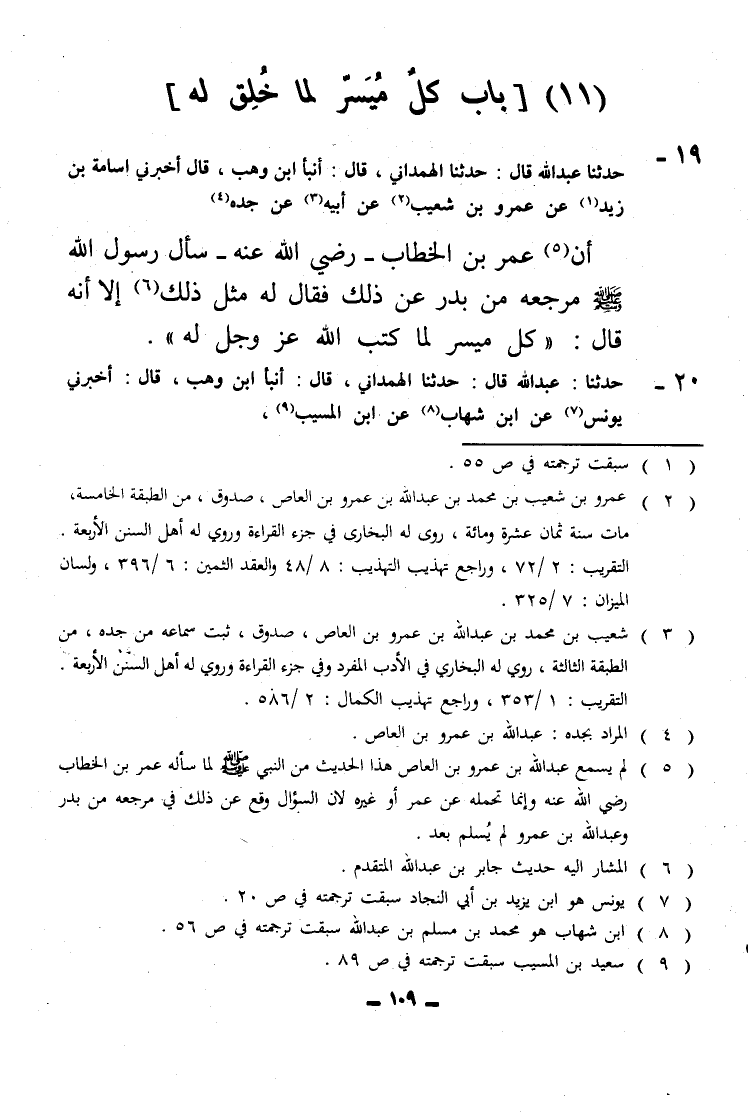 (١١) [ باب كلٌ مُيَسرّ لما خُلِق له ]
١٩ ـ
حدثنا عبدالله قال : حدثنا الهمداني ، قال : أنبأ ابن وهب ، قال أخبرني اسامة بن
زيد(١) عن عمرو بن شعيب(٢) عن أبيه(٣) عن جده(٤)
أن(٥) عمر بن الخطاب ـ رضي الله عنه ـ سأل رسول الله
ﷺ مرجعه من بدر عن ذلك فقال له مثل ذلك(٦) إلا أنه
قال : « كل ميسر لما كتب الله عز وجل له » .
٢٠ ـ حدثنا : عبدالله قال : حدثنا الهمداني ، قال : أنبأ ابن وهب ، قال : أخبرني
يونس(٧) عن ابن شهاب(٨) عن ابن المسيب(٩) ،
( ١ ) سبقت ترجمته في ص ٥٥ .
( ٢ ) عمرو بن شعيب بن محمد بن عبدالله بن عمرو بن العاص ، صدوق ، من الطبقة الخامسة،
مات سنة ثمان عشرة ومائة ، روى له البخارى في جزء القراءة وروي له أهل السنن الأربعة .
التقريب : ٢ /٧٢ ، وراجع تهذيب التهذيب : ٨ /٤٨ والعقد الثمين : ٦ /٣٩٦ ، ولسان
الميزان : ٧ /٣٢٥ .
( ٣ ) شعيب بن محمد بن عبدالله بن عمرو بن العاص ، صدوق ، ثبت سماعه من جده ، من
الطبقة الثالثة ، روي له البخاري في الأدب المفرد وفي جزء القراءة وروي له أهل السنن الأربعة .
التقريب : ١ /٣٥٣ ، وراجع تهذيب الكمال : ٢ /٥٨٦ .
( ٤ ) المراد بجده : عبدالله بن عمرو بن العاص .
( ٥ ) لم يسمع عبدالله بن عمرو بن العاص هذا الحديث من النبي ﷺ لما سأله عمر بن الخطاب
رضي الله عنه وإنما تحمله عن عمر أو غيره لان السؤال وقع عن ذلك في مرجعه من بدر
وعبدالله بن عمرو لم يُسلم بعد .
( ٦ ) المشار اليه حديث جابر بن عبدالله المتقدم .
( ٧ ) يونس هو ابن يزيد بن أبي النجاد سبقت ترجمته في ص ٢٠ .
( ٨ ) ابن شهاب هو محمد بن مسلم بن عبدالله سبقت ترجمته في ص ٥٦ .
( ٩ ) سعيد بن المسيب سبقت ترجمته في ص ٨٩ .
ـ ١٠٩ ـ